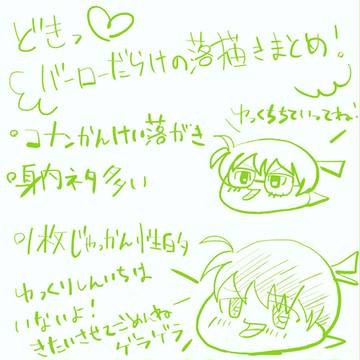 どきっ♡
バーローだらけの落描きまとめ!
ゆっくちちていってね!
°コナンかんけい落がき
°身内ネタ多い
°1枚じゃっかん性的
ゆっくりしんいちは
いないよ!
きたいさせてごめんねー
ゲラゲラ